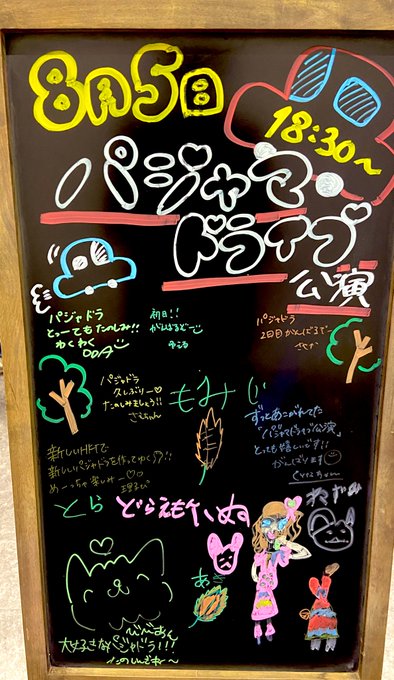 8月5日
18:30〜
パジャマ
ドライブ
公演
パジャドラ
とぉーてもたのしみ!!
わくわく
初日!!
がんばるぞー
パジャドラ
2回目がんばるぞー
パジャドラ
久しぶりー♡
たのしみましょう!!
もみじ
ずっとあこがれてた
"パジャマドライブ公演"
とっても嬉しいです!!
がんばります
新しいHKTで
新しいパジャドラを作ってわくわく!!
めーっちゃ楽しみー♡
とら
どらえもん いぬ
ねずみ
あき
びびあん
大好きなパジャドラ!!!